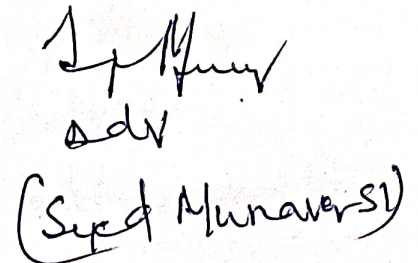 Adv
(Syed Munaver SI)